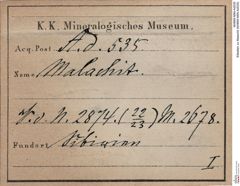 K.K. Mineralogisches Museum.
Acq. Post. A.d. 535
Name Malachit.
F.o.N. 2874. (22/23) M. 2678.
Fundort Sibirien
I.